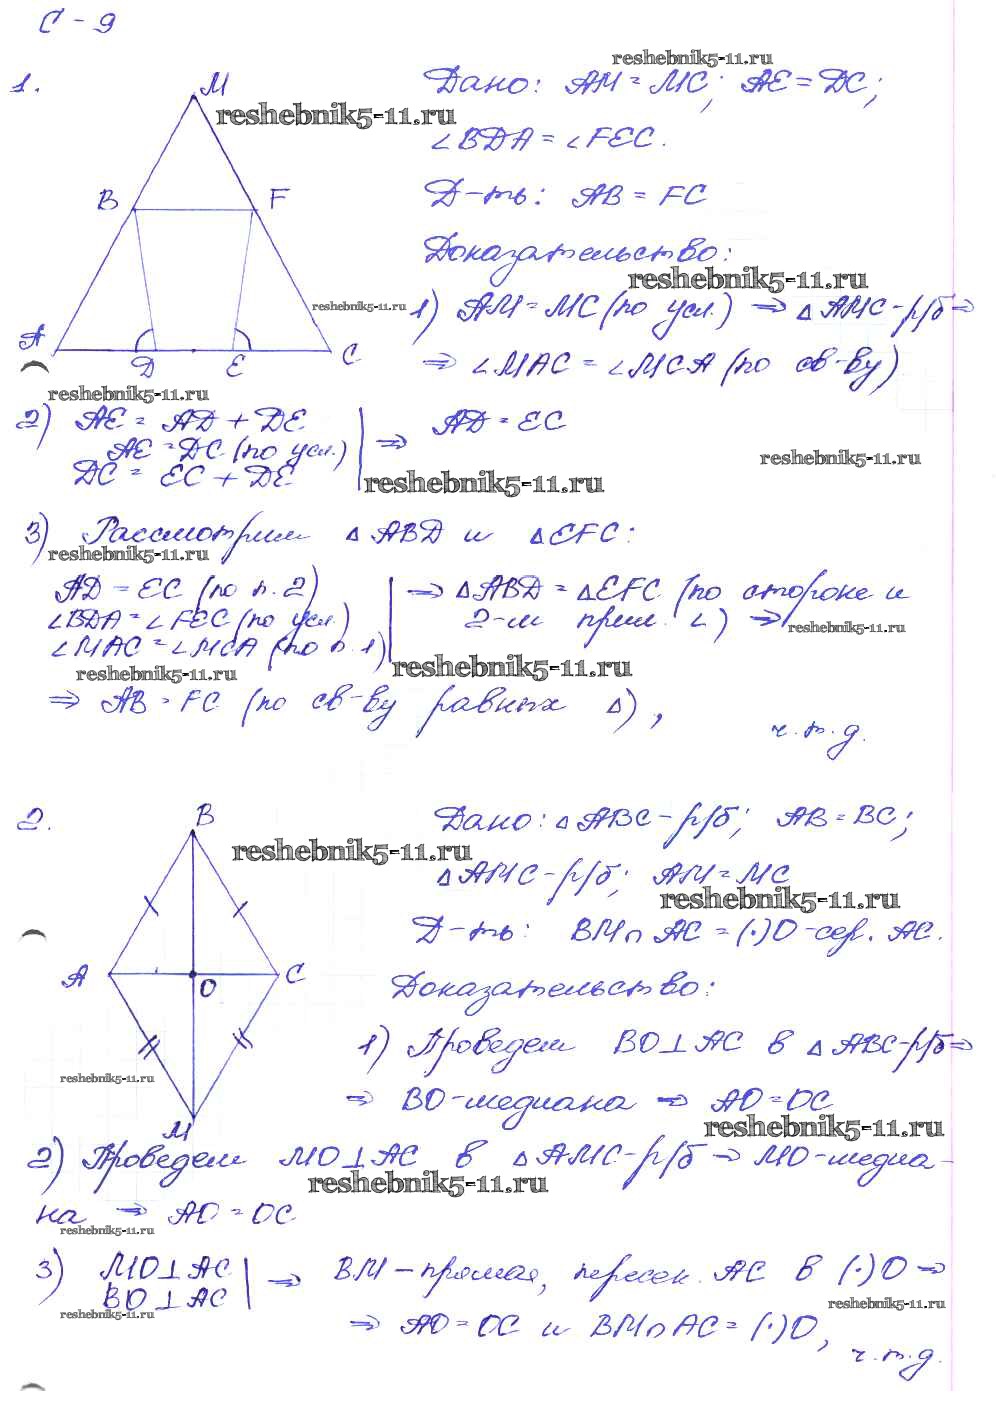 С-9
1.
M
B F
A D E C
reshebnik5-11.ru
reshebnik5-11.ru
Дано: AM = MC; AE = DC;
∠BDA = ∠FEC.
Д-ть: AB = FC
Доказательство:
reshebnik5-11.ru
reshebnik5-11.ru
1) AM = MC (по усл.) ⇒ △AMC-р/б ⇒
⇒ ∠MAC = ∠MCA (по св-ву)
reshebnik5-11.ru
2) AE = AD + DE
AE = DC (по усл.)
DC = EC + DE
⇒ AD = EC
reshebnik5-11.ru
reshebnik5-11.ru
3) Рассмотрим △ABD и △EFC:
reshebnik5-11.ru
AD = EC (по п. 2)
∠BDA = ∠FEC (по усл.)
∠MAC = ∠MCA (по п. 1)
⇒ △ABD = △EFC (по стороне и
2-м прил. ∠) ⇒
reshebnik5-11.ru
reshebnik5-11.ru
reshebnik5-11.ru
⇒ AB = FC (по св-ву равных △),
ч.т.д.
2.
B
A O C
M
Дано: △ABC-р/б; AB = BC;
reshebnik5-11.ru
△AMC-р/б; AM = MC
reshebnik5-11.ru
Д-ть: BM ∩ AC = (·)O-сер. AC.
Доказательство:
1) Проведем BO ⊥ AC в △ABC-р/б ⇒
reshebnik5-11.ru
⇒ BO-медиана ⇒ AO = OC
reshebnik5-11.ru
2) Проведем MO ⊥ AC в △AMC-р/б ⇒ MO-медиа-
reshebnik5-11.ru
на ⇒ AO = OC
reshebnik5-11.ru
3) MO ⊥ AC
BO ⊥ AC
⇒ BM – прямая, пересек. AC в (·)O ⇒
reshebnik5-11.ru
reshebnik5-11.ru
⇒ AO = OC и BM ∩ AC = (·)O,
ч.т.д.